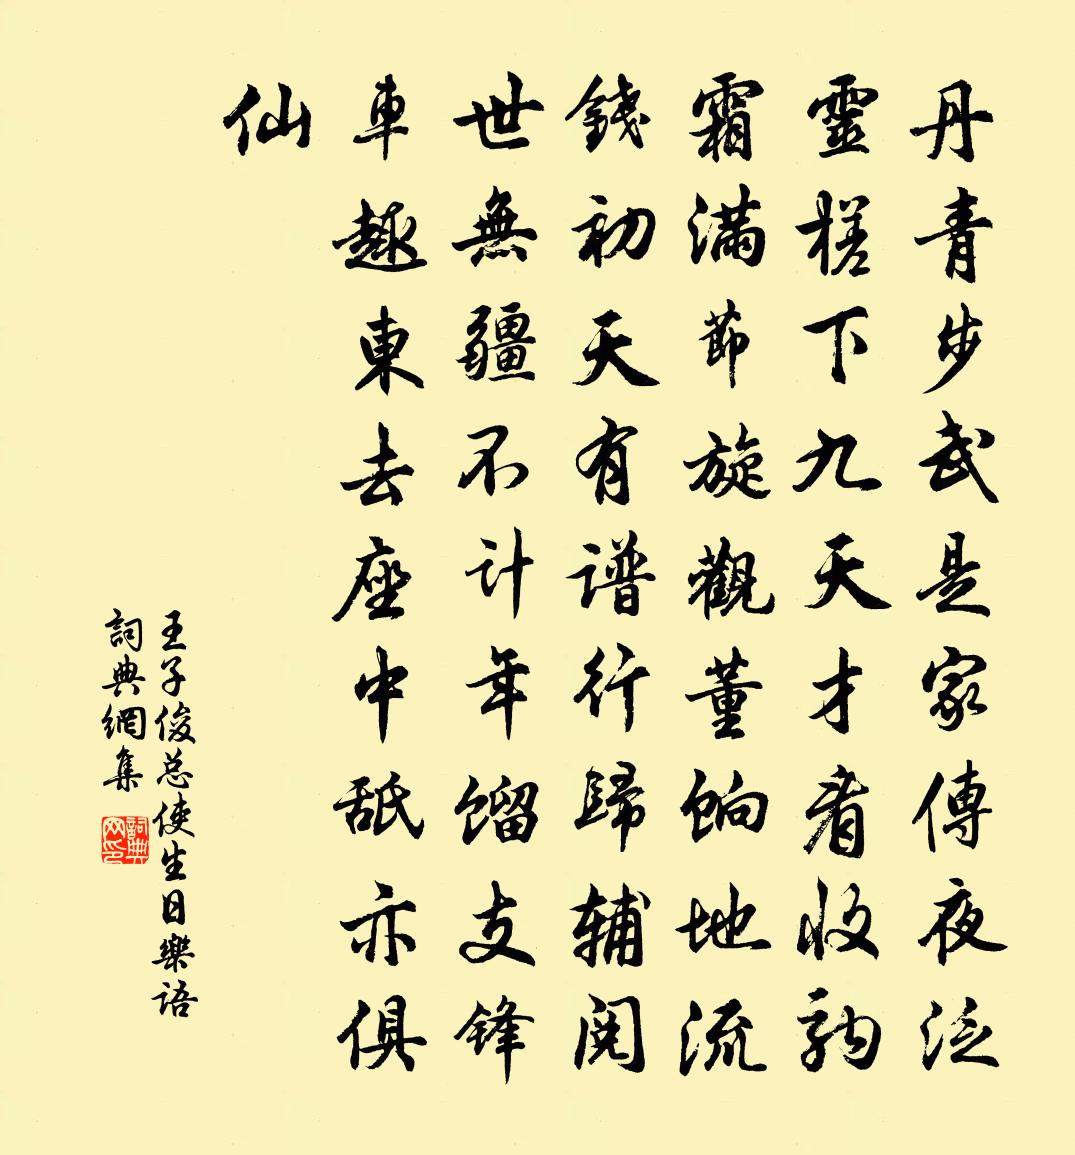 丹青步武是家傳夜泛
靈槎下九天才看收
霜滿節旋觀董饷地流
錢初天有谱行歸辅阅
世無疆不计年馏支锋
車趣東去座中舐亦俱
仙
王子俊总使生日樂语
詞典網集
詞典网印